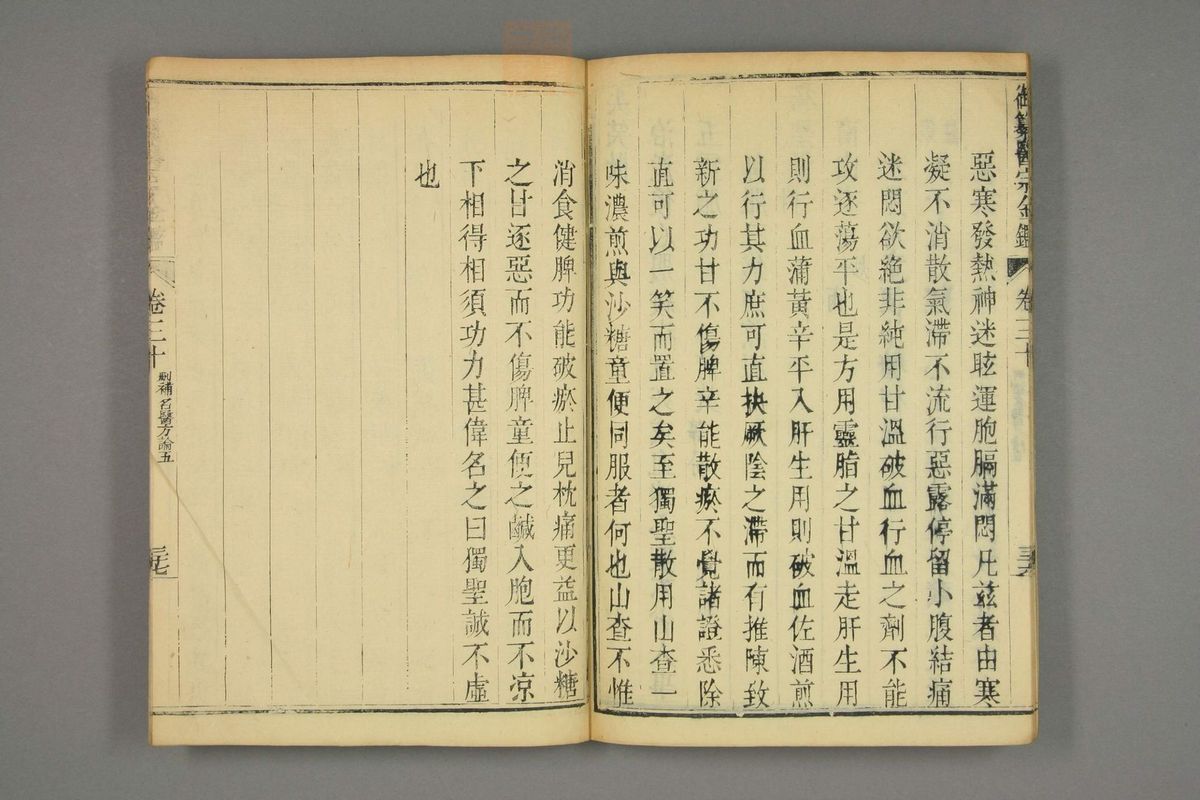 御纂醫宗金鑑
卷三十
三六
惡寒發熱神迷眩運胞膈滿悶凡兹者由寒
凝不消散氣滯不流行惡露停留小腹結痛
迷悶欲絶非純用甘溫破血行血之劑不能
攻逐蕩平也是方用靈脂之甘溫走肝生用
則行血蒲黃辛平入肝生用則破血佐酒煎
以行其力庶可直抉厥陰之滯而有推陳致
新之功甘不傷脾辛能散瘀不覺諸證悉除
直可以一笑而置之矣至獨聖散用山查一
味濃煎與沙糖童便同服者何也山查不惟
消食健脾功能破瘀止兒枕痛更益以沙糖
之甘逐惡而不傷脾童便之鹹入胞而不凉
下相得相須功力甚偉名之曰獨聖誠不虛
也
卷三十
刪補名醫方論五
三七